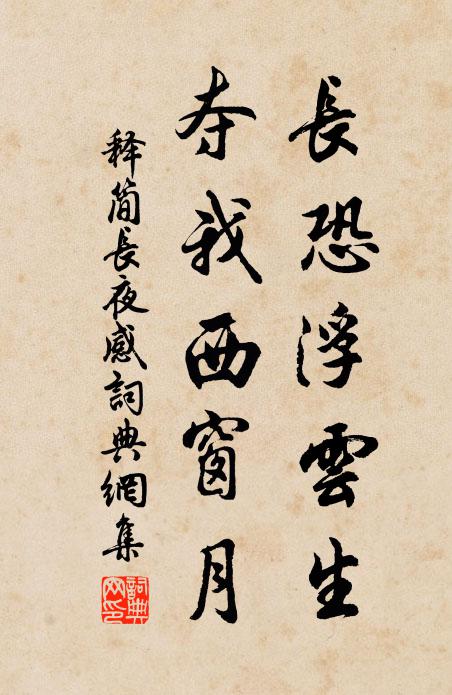 長恐浮雲生
夺我西窗月
释简長夜感詞典網集
詞典網印